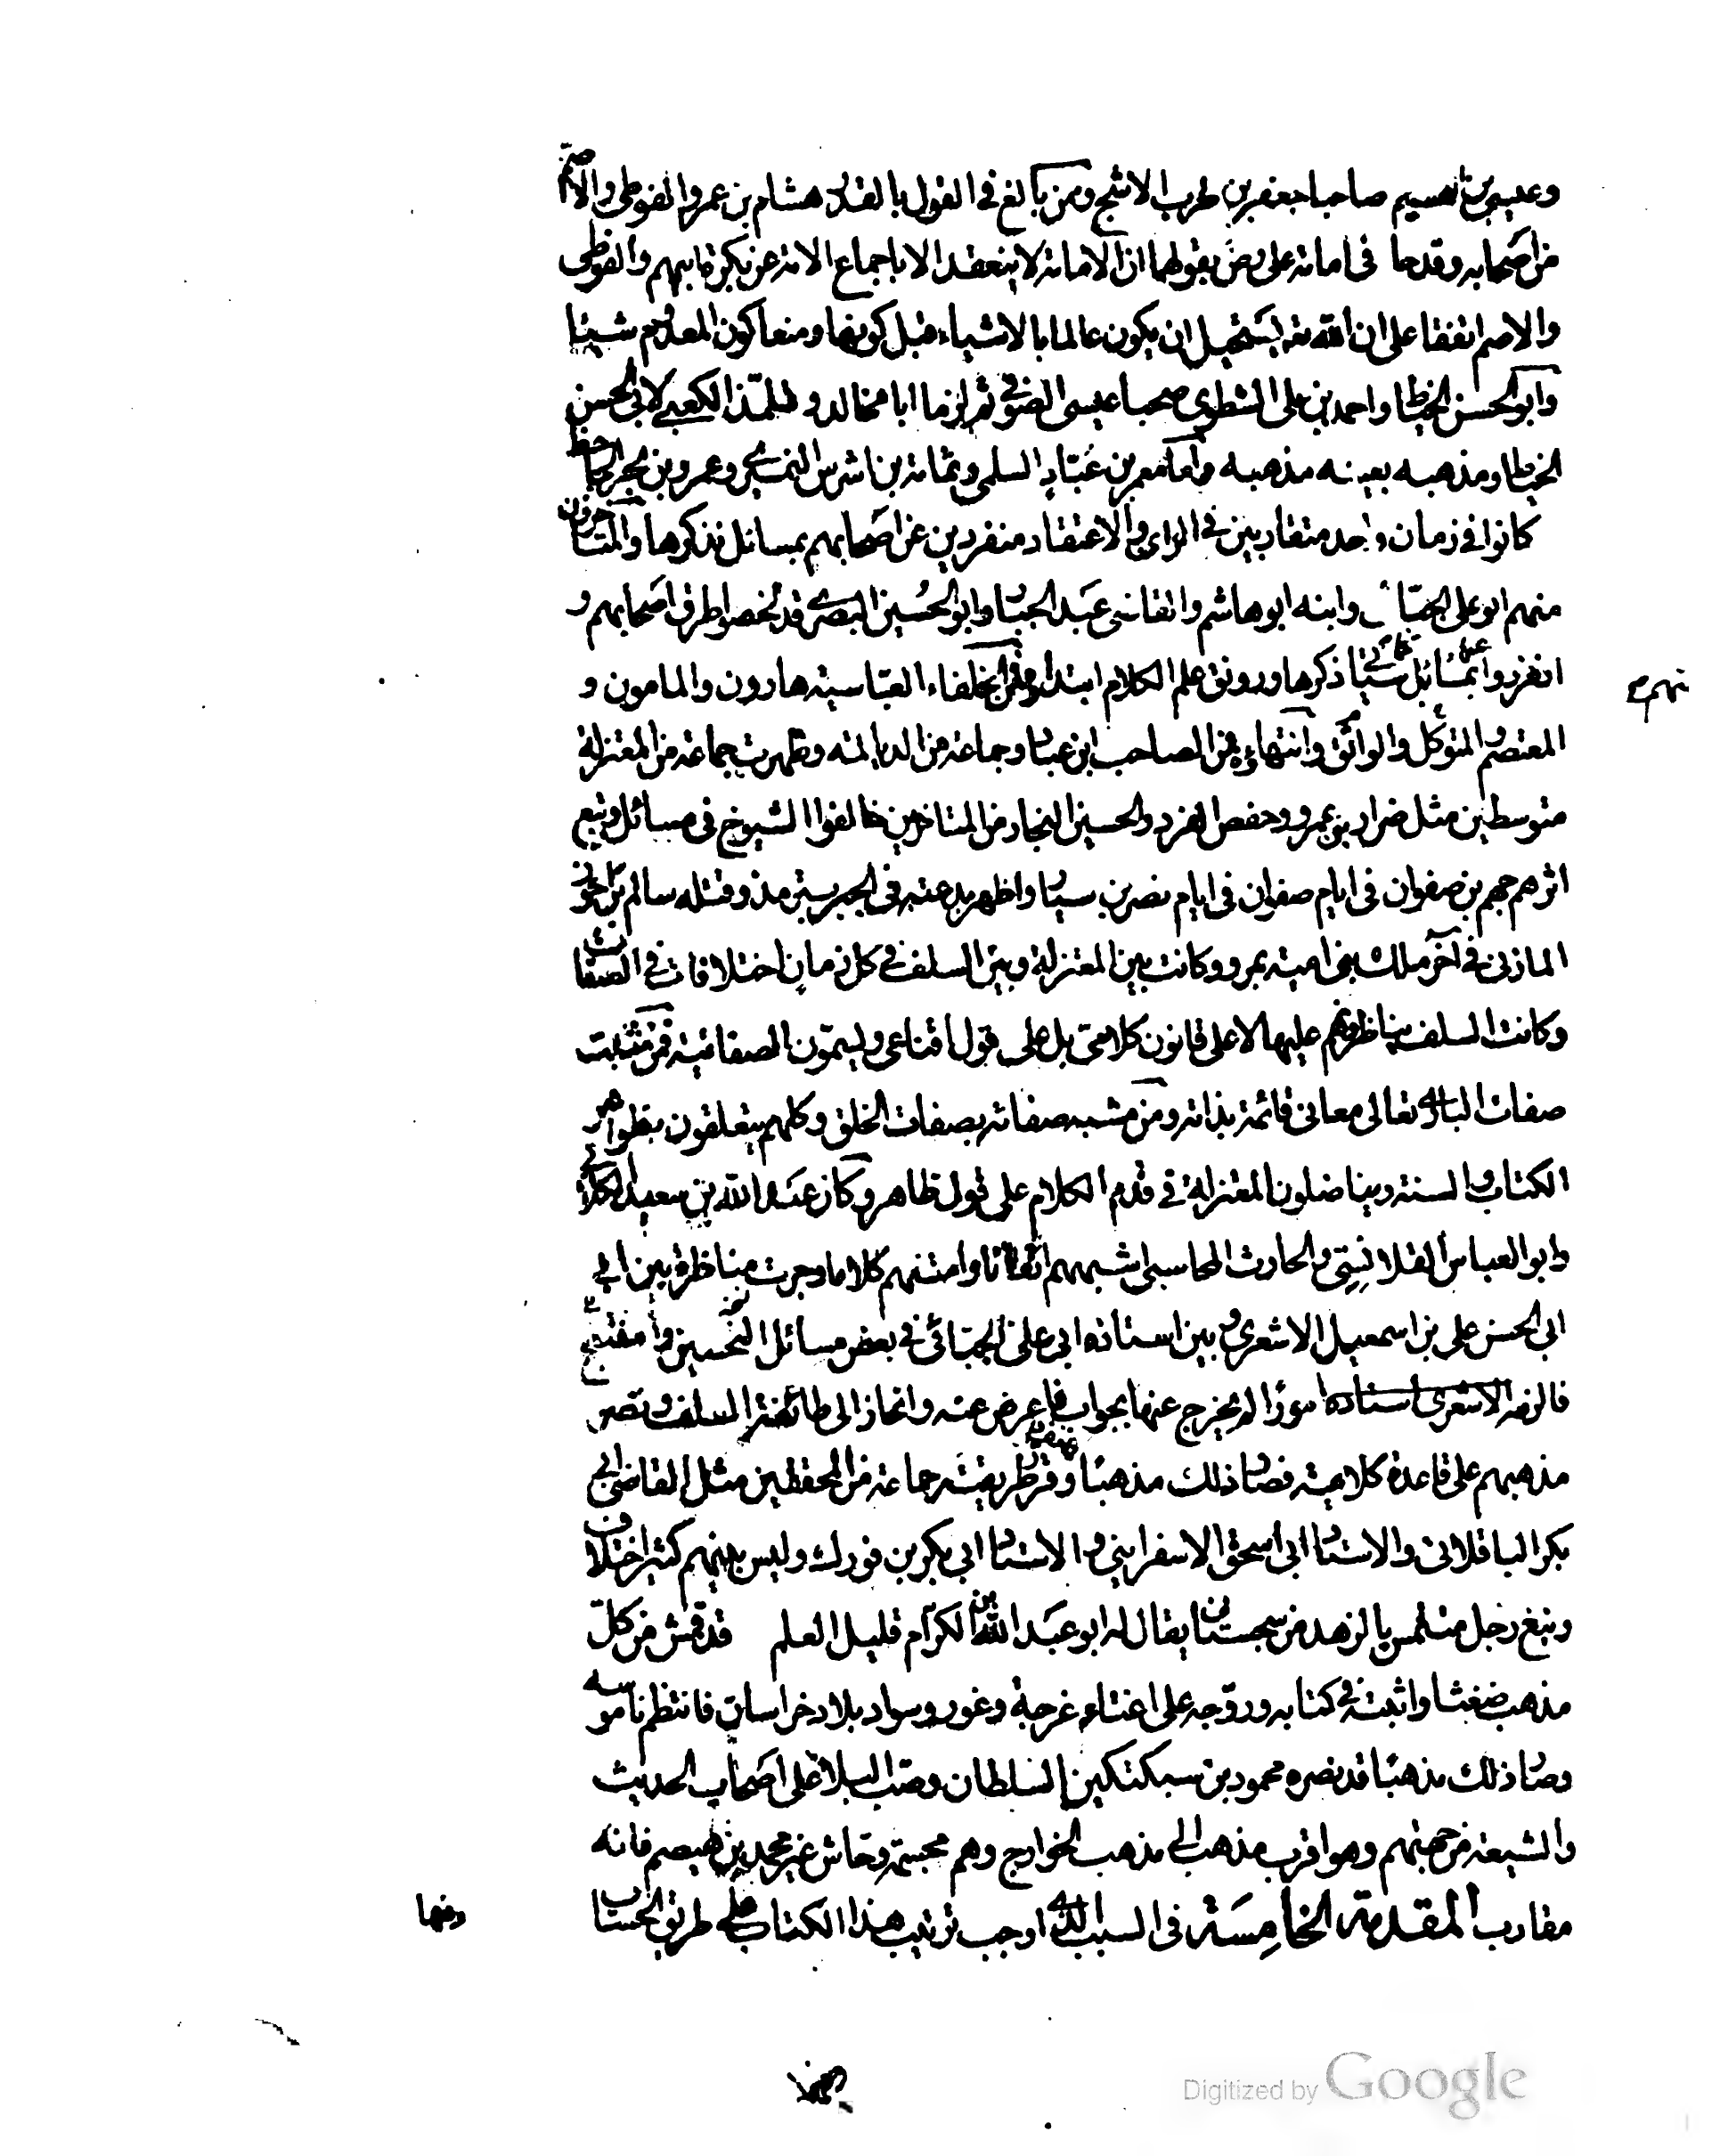 وعيسى بن الهيثم صاحبا جعفر بن حرب الاشج وممن بالغ في القول بالقدر هشام بن عمرو الفوطي والاصم
من اصحابه وقدحا في امامة علي رض بقولهما ان الامامة لا ينعقد الا باجماع الامة عن بكرة ابيهم والفوطي
والاصم اتفقا على ان الله تع يستحيل ان يكون عالما بالاشياء قبل كونها ومنعا كون المعدوم شيئا
وابو الحسن الخياط واحمد بن علي الشطوي صحبا عيسى الصوفي ثم لزما ابا مخالد وتلمذ الكعبي لابي الحسن
الخياط ومذهبه بعينه مذهبه واما معمر بن عباد السلمي وثمامة بن اشرس النميري وعمرو بن بحر الجاحظ
كانوا في زمان واحد متقاربين في الراي والاعتقاد منفردين عن اصحابهم بمسائل نذكرها والمتاخرون
منهم ابو علي الجبائي وابنه ابو هاشم والقاضي عبد الجبار وابو الحسين البصري قد لخصوا طرق اصحابهم و
انفردوا عنهم بمسائل سياتي ذكرها ورونق علم الكلام ابتداؤه فمن الخلفاء العباسية هارون والمامون و
المعتصم والمتوكل والواثق وانتهاؤه فمن الصاحب ابن عباد وجماعة من الديالمة وظهرت جماعة من المعتزلة
متوسطين مثل ضرار بن عمرو وحفص الفرد والحسين النجار من المتاخرين خالفوا الشيوخ في مسائل وتبع
اثرهم جهم بن صفوان في ايام صفوان في ايام نصر بن سيار واظهر بدعته في الجبر بترمذ وقتله سالم بن احوز
المازني في آخر ملك بني امية بمرو وكانت بين المعتزلة وبين السلف في كل زمان اختلافات في الصفات
وكانت السلف يناظرونهم عليها لا على قانون كلامي بل على قول اقناعي ويسمون الصفاتية فمن مثبت
صفات الباري تعالى معاني قائمة بذاته ومن مشبه صفاته بصفات الخلق وكلهم يتعلقون بظواهر
الكتاب والسنة ويناضلون المعتزلة في قدم الكلام على قول ظاهر وكان عبد الله بن سعيد الكلابي
وابو العباس القلانسي والحارث المحاسبي اشبههم اتقانا وامتنهم كلاما وجرت مناظرة بين ابي
ابي الحسن علي بن اسمعيل الاشعري وبين استاذه ابي علي الجبائي في بعض مسائل التحسين والتقبيح
فالزم الاشعري استاذه امورا لم يخرج عنها بجواب فاعرض عنه وانحاز الى طائفة السلف ونصر
مذهبهم على قاعدة كلامية فصار ذلك مذهبا وقرر طريقته جماعة من المحققين مثل القاضي ابي
بكر الباقلاني والاستاذ ابي اسحق الاسفرايني والاستاذ ابي بكر بن فورك وليس بينهم كثير اختلاف
ونبغ رجل متنمس بالزهد من سجستان يقال له ابو عبد الله بن الكرام قليل العلم قد قمش من كل
مذهب ضغثا واثبته في كتابه وروجه على اغتام غرجة وغور وسواد بلاد خراسان فانتظم ناموسه
وصار ذلك مذهبا قد نصره محمود بن سبكتكين السلطان وصب البلاء على اصحاب الحديث
والشيعة من جهتهم وهو اقرب مذهب الى مذهب الخوارج وهم مجسمة وحاش غير محمد بن هيصم فانه
مقارب المقدمة الخامسة في السبب الذي اوجب ترتيب هذا الكتاب على طريق الحساب
وفيها
Digitized by Google